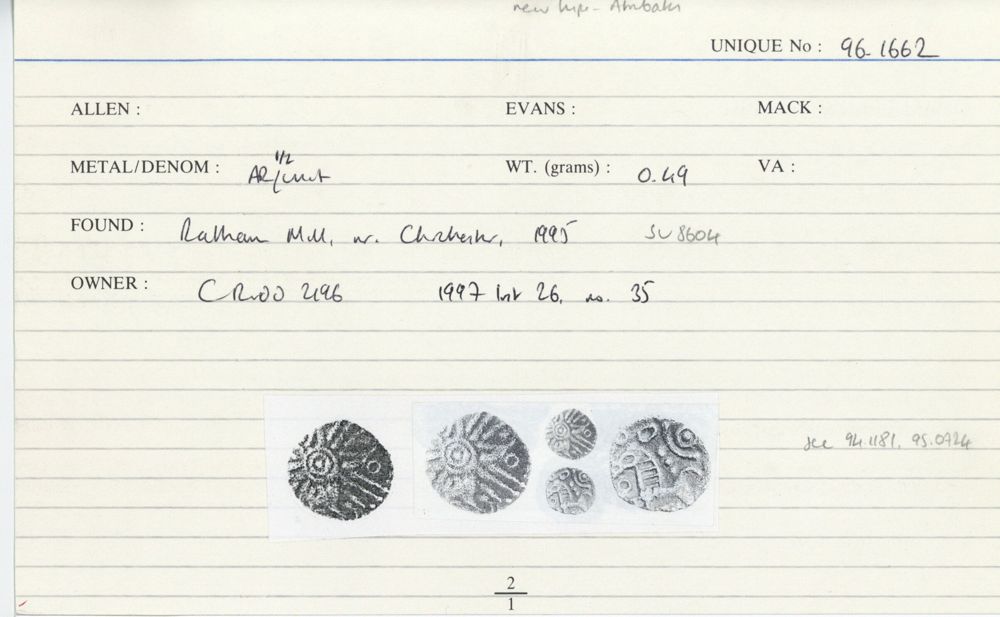 new type - Atrebates
UNIQUE No : 96.1662
ALLEN : EVANS : MACK :
METAL/DENOM : AR 1/2 unit WT. (grams) : 0.49 VA :
FOUND : Ratham Mill, nr. Chichester, 1995 SU 8604
OWNER : C Rudd 2196 1997 list 26, no. 35
see 94.1181, 95.0724
2
1